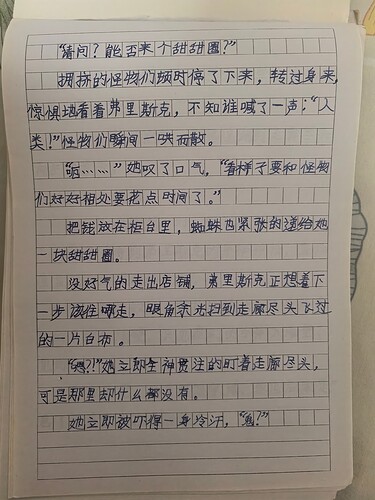 “请问？能否来个甜甜圈？”
拥挤的怪物们顿时停了下来，转过身来，
惊惧地看着弗里斯克，不知谁喊了一声：“人
类！”怪物们瞬间一哄而散。
“唔……”她叹了口气，“看样子要和怪物
们好好相处要花点时间了。”
把钱放在柜台里，蜘蛛也紧张的递给她
一块甜甜圈。
没好气的走出店铺，弗里斯克正想着下
一步该往哪走，眼角余光扫到走廊尽头飞过
的一片白布。
“嗯？！”她立即全神贯注的盯着走廊尽头，
可是那里却什么都没有。
她立即被吓得一身冷汗，“鬼？”